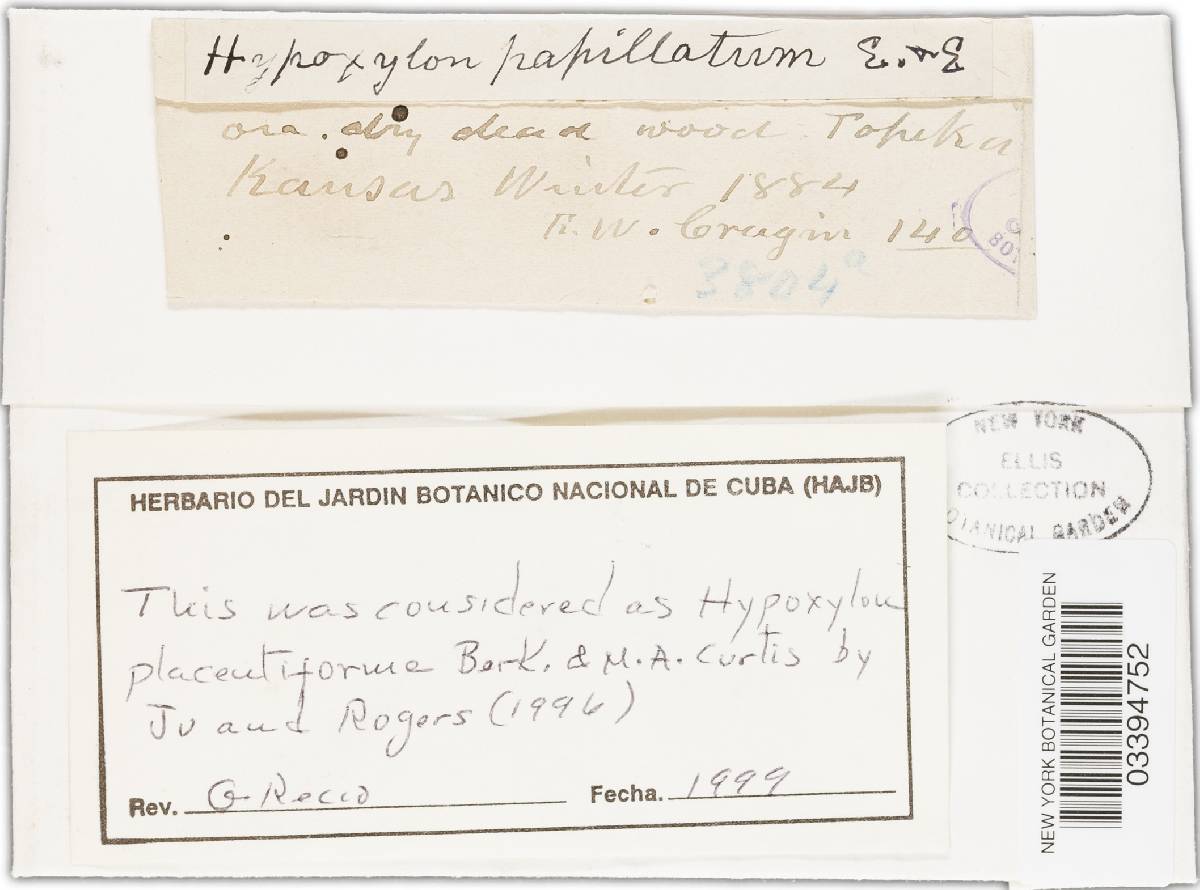 Hypoxylon papillatum E. & E
on. dry dead wood Topeka
Kansas Winter 1884
F. W. Cragin 140
3804a
BOT
NEW YORK
ELLIS
COLLECTION
BOTANICAL GARDEN
HERBARIO DEL JARDIN BOTANICO NACIONAL DE CUBA (HAJB)
This was considered as Hypoxylon
placentiforme Berk. & M. A. Curtis by
Ju and Rogers (1996)
Rev. G Recio Fecha. 1999
NEW YORK BOTANICAL GARDEN
03394752